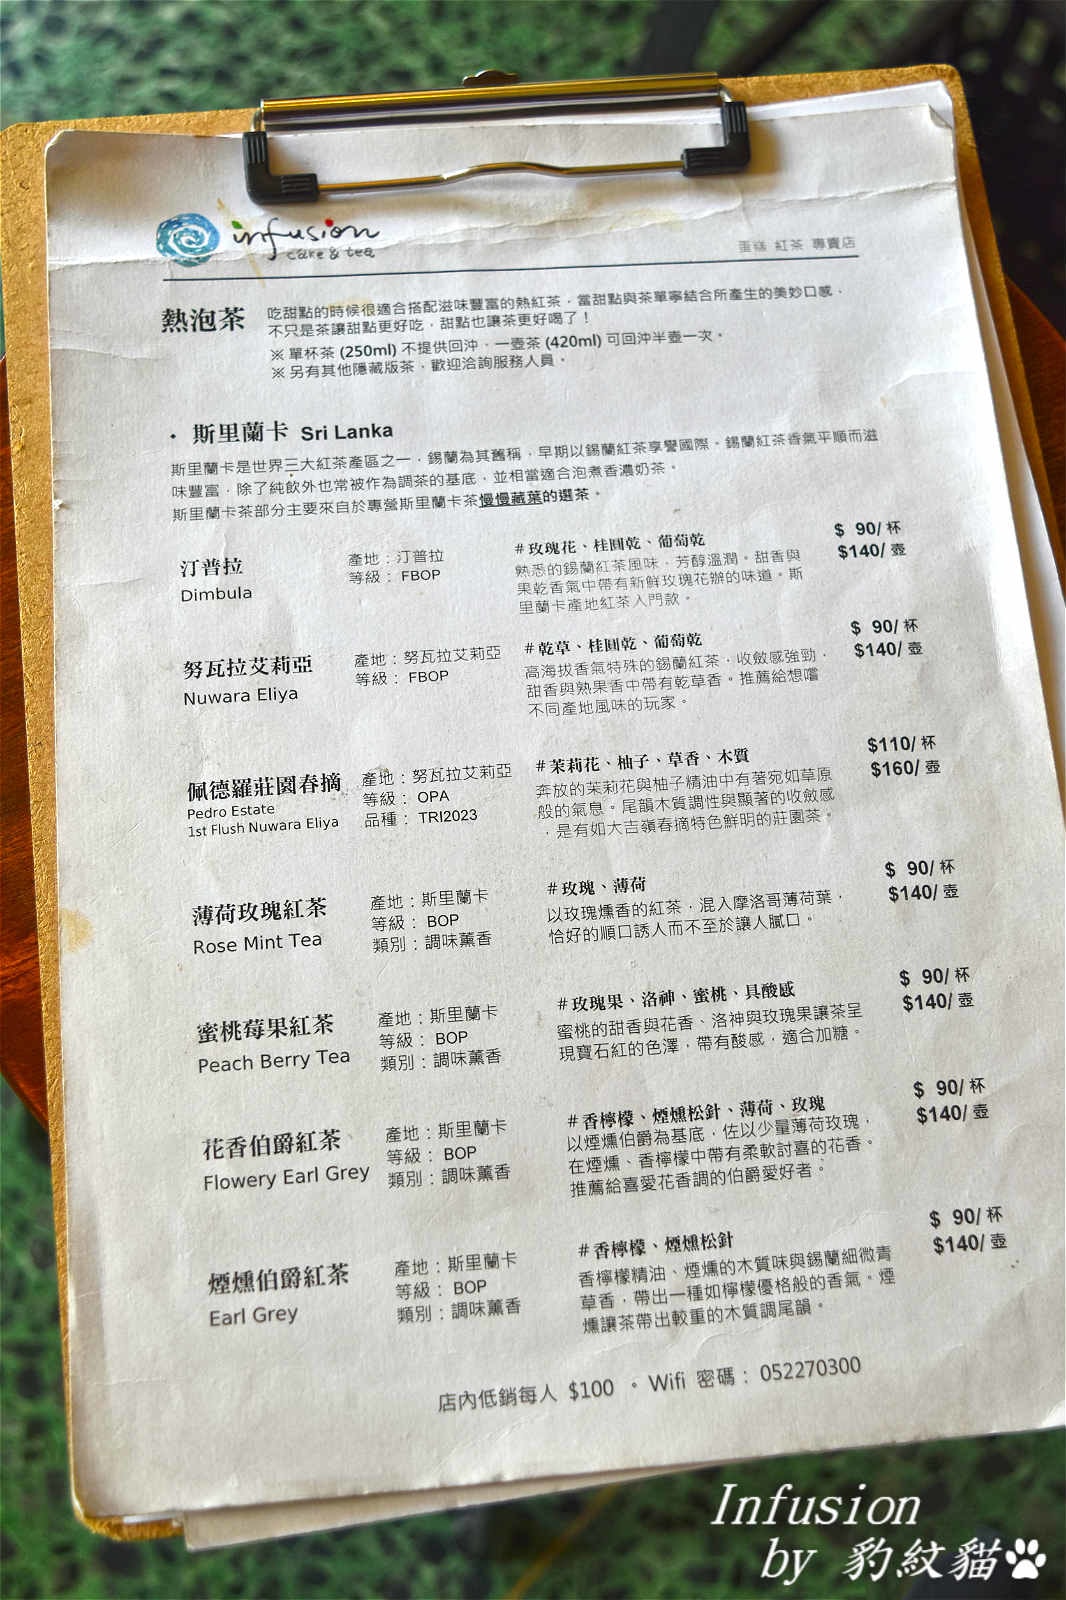 infusion
cake & tea
蛋糕 紅茶 專賣店
熱泡茶
吃甜點的時候很適合搭配滋味豐富的熱紅茶，當甜點與茶單寧結合所產生的美妙口感，
不只是茶讓甜點更好吃，甜點也讓茶更好喝了！
※ 單杯茶 (250ml) 不提供回沖，一壺茶 (420ml) 可回沖半壺一次。
※ 另有其他隱藏版茶，歡迎洽詢服務人員。
· 斯里蘭卡 Sri Lanka
斯里蘭卡是世界三大紅茶產區之一，錫蘭為其舊稱，早期以錫蘭紅茶享譽國際。錫蘭紅茶香氣平順而滋
味豐富，除了純飲外也常被作為調茶的基底，並相當適合泡煮香濃奶茶。
斯里蘭卡茶部分主要來自於專營斯里蘭卡茶慢慢藏葉的選茶。
汀普拉
Dimbula
產地：汀普拉
等級： FBOP
#玫瑰花、桂圓乾、葡萄乾
熟悉的錫蘭紅茶風味，芳醇溫潤。甜香與
果乾香氣中帶有新鮮玫瑰花辦的味道。斯
里蘭卡產地紅茶入門款。
$ 90/ 杯
$140/ 壺
努瓦拉艾莉亞
Nuwara Eliya
產地：努瓦拉艾莉亞
等級： FBOP
#乾草、桂圓乾、葡萄乾
高海拔香氣特殊的錫蘭紅茶，收斂感強勁，
甜香與熟果香中帶有乾草香。推薦給想嚐
不同產地風味的玩家。
$ 90/ 杯
$140/ 壺
佩德羅莊園春摘
Pedro Estate
1st Flush Nuwara Eliya
產地：努瓦拉艾莉亞
等級： OPA
品種： TRI2023
#茉莉花、柚子、草香、木質
奔放的茉莉花與柚子精油中有著宛如草原
般的氣息。尾韻木質調性與顯著的收斂感
，是有如大吉嶺春摘特色鮮明的莊園茶。
$110/ 杯
$160/ 壺
薄荷玫瑰紅茶
Rose Mint Tea
產地：斯里蘭卡
等級： BOP
類別：調味薰香
#玫瑰、薄荷
以玫瑰燻香的紅茶，混入摩洛哥薄荷葉，
恰好的順口誘人而不至於讓人膩口。
$ 90/ 杯
$140/ 壺
蜜桃莓果紅茶
Peach Berry Tea
產地：斯里蘭卡
等級： BOP
類別：調味薰香
#玫瑰果、洛神、蜜桃、具酸感
蜜桃的甜香與花香、洛神與玫瑰果讓茶呈
現寶石紅的色澤，帶有酸感，適合加糖。
$ 90/ 杯
$140/ 壺
花香伯爵紅茶
Flowery Earl Grey
產地：斯里蘭卡
等級： BOP
類別：調味薰香
#香檸檬、煙燻松針、薄荷、玫瑰
以煙燻伯爵為基底，佐以少量薄荷玫瑰，
在煙燻、香檸檬中帶有柔軟討喜的花香。
推薦給喜愛花香調的伯爵愛好者。
$ 90/ 杯
$140/ 壺
煙燻伯爵紅茶
Earl Grey
產地：斯里蘭卡
等級： BOP
類別：調味薰香
#香檸檬、煙燻松針
香檸檬精油、煙燻的木質味與錫蘭細微青
草香，帶出一種如檸檬優格般的香氣。煙
燻讓茶帶出較重的木質調尾韻。
$ 90/ 杯
$140/ 壺
店內低銷每人 $100 。Wifi 密碼： 052270300
Infusion
by 豹紋貓